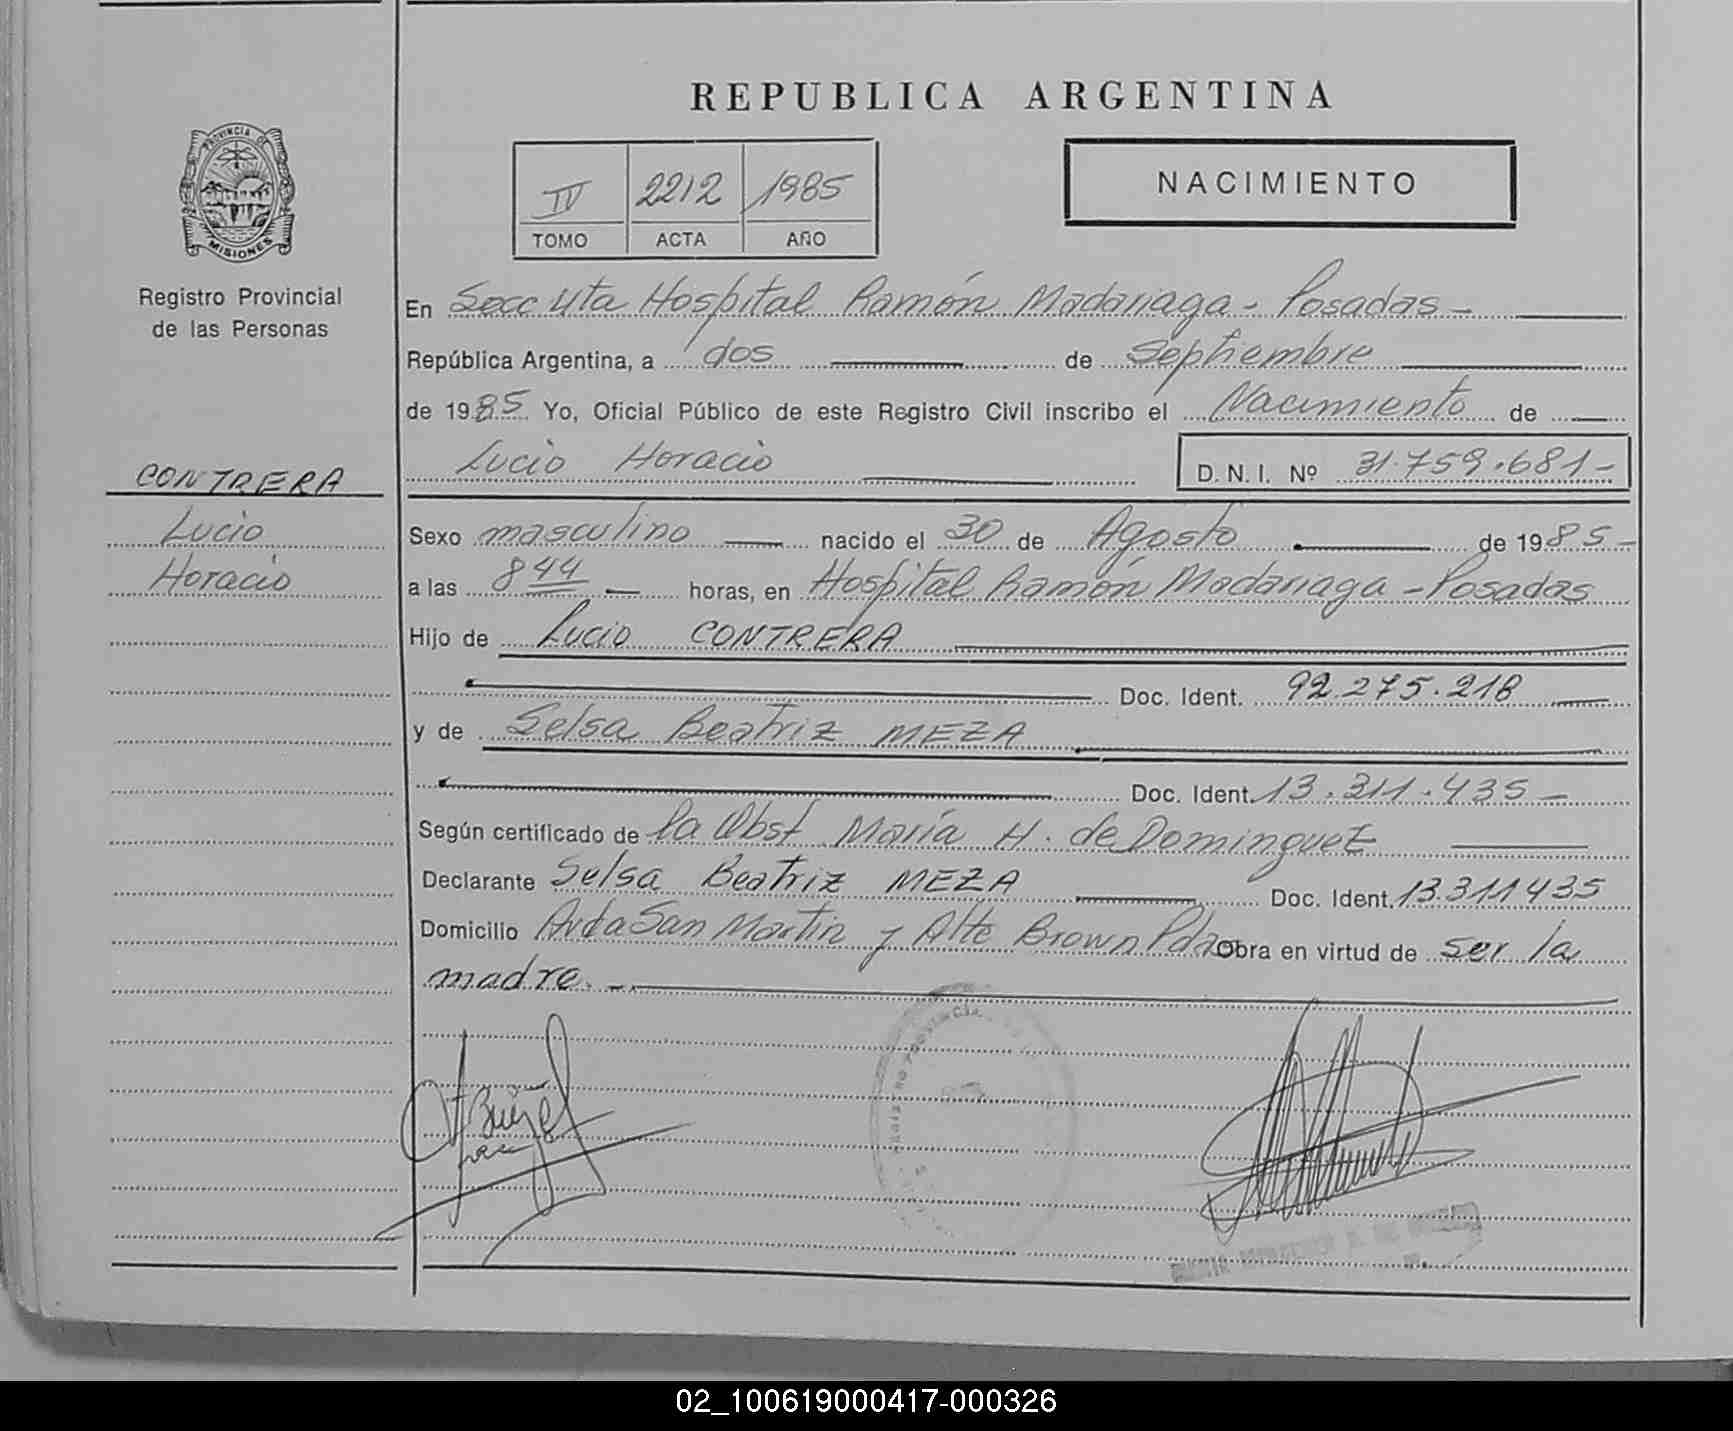 REPUBLICA ARGENTINA
PROVINCIA DE
MISIONES
Registro Provincial
de las Personas
IV 2212 1985
TOMO ACTA AÑO
NACIMIENTO
En Secc 4ta Hospital Ramón Madariaga - Posadas -
República Argentina, a dos de Septiembre
de 1985 Yo, Oficial Público de este Registro Civil inscribo el Nacimiento de
Lucio Horacio D.N.I. Nº 31.759.681-
CONTRERA
Lucio
Horacio
Sexo masculino nacido el 30 de Agosto de 1985-
a las 8 44 horas, en Hospital Ramón Madariaga - Posadas
Hijo de Lucio CONTRERA
Doc. Ident. 92.275.218
y de Selsa Beatriz MEZA
Doc. Ident. 13.311.435-
Según certificado de la Obst María H. de Dominguez
Declarante Selsa Beatriz MEZA Doc. Ident. 13.311435
Domicilio Avda San Martin y Alte Brown Pdas Obra en virtud de ser la
madre.
02_100619000417-000326